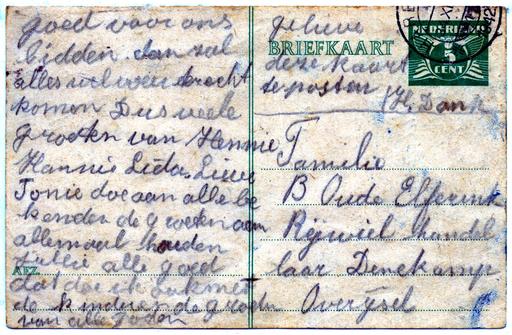 goed voor ons
bidden dan zal
alles wel weer terecht
komen Dus veele
groeten van Hennie
Hannie Lida Lieve
Tonie doe aan alle be
kenden de groeten aan
allemaal houden
jullie alle goed
dat doe ik ook met
de kinderen de groeten
van alle
AFZ.
gelieve
BRIEFKAART
deze kaart
te posten
(H. Dank
NEDERLAND
5
CENT
Familie
B Oude Elferink
Rijwiel handel
laar Denekamp
Overijsel